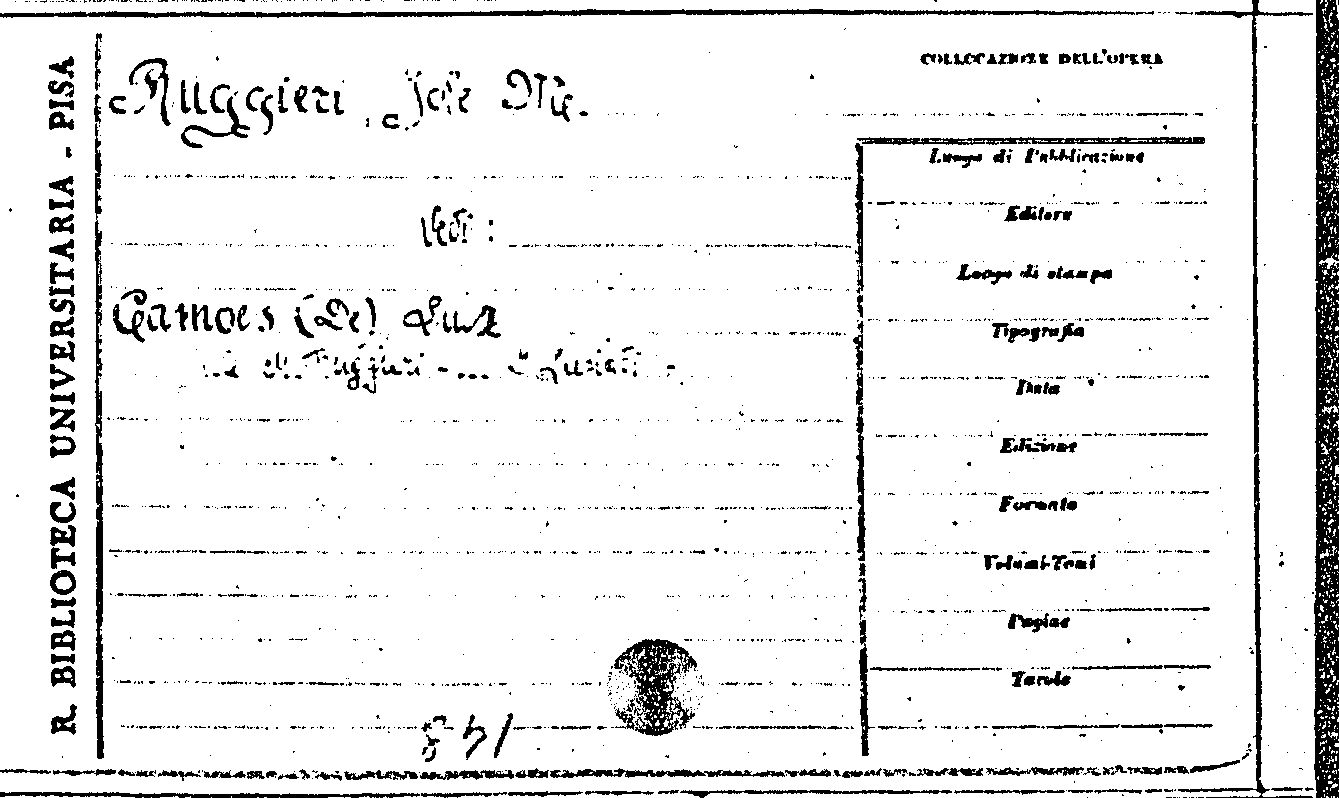 R. BIBLIOTECA UNIVERSITARIA - PISA
Ruggieri
Vedi :
Camoes (De) Luiz
Ruggieri - ... I Lusiadi -
COLLOCAZIONE DELL'OPERA
Luogo di Pubblicazione
Editore
Luogo di stampa
Tipografia
Data
Edizione
Formato
Volumi-Tomi
Pagine
Tavole